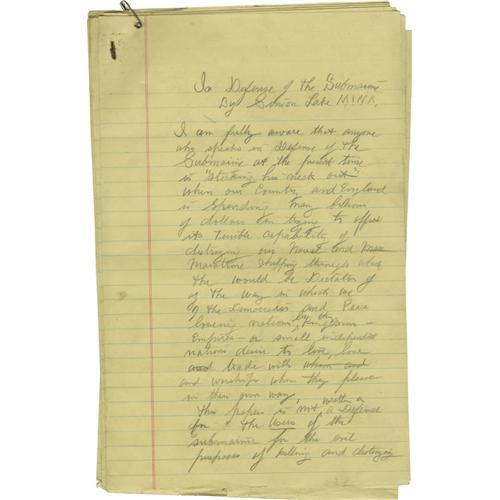 In Defense of the Submarine
By Simon Lake M.I.N.A.
I am fully aware that anyone
who speaks in Defense of the
Submarine at the present time
is "sticking his neck out"
when our Country and England
is Spending many billions
of dollars in trying to offset
its Terrible capability of
destroying our Naval and
Maritime Shipping through which
the would be Dictator of
of the way in which we
of the Democracies and Peace
loving nations, by the Kingdoms -
Empires - or small independent
nations desire to live, love
and trade with whom and
and worship whom they please
in their own way,
This paper is not written a Defense
for the Users of the
submarine for the evil
purposes of killing and destroying